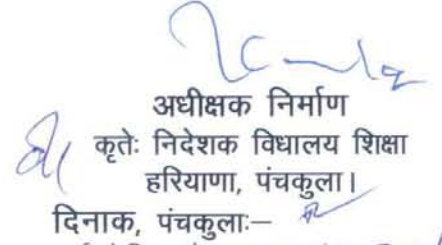 अधीक्षक निर्माण
कृतेः निदेशक विधालय शिक्षा
हरियाणा, पंचकुला।
दिनाक, पंचकुलाः–